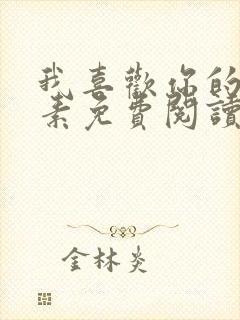 我喜歡你的
素免費閱讀
金林炎